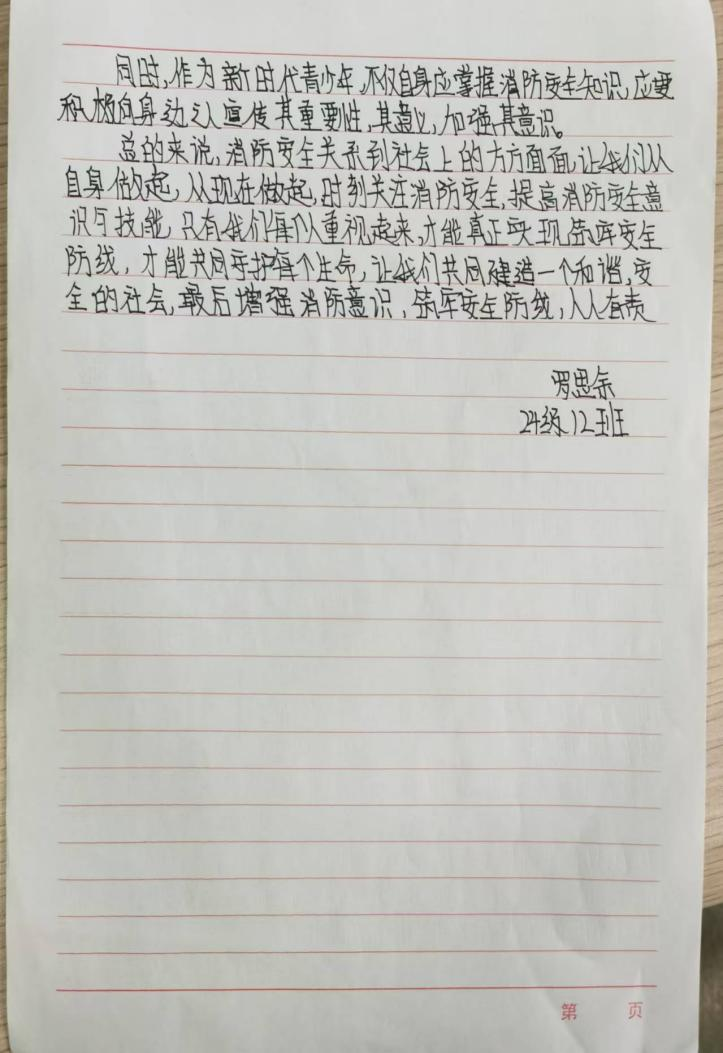 同时,作为新时代青少年,不仅自身应掌握消防安全知识,应要
积极向身边之人宣传其重要性,其意义,加强其意识。
总的来说,消防安全关系到社会上的方方面面,让我们从
自身做起,从现在做起,时刻关注消防安全,提高消防安全意
识与技能,只有我们每个人重视起来,才能真正实现筑牢安全
防线,才能共同守护每个生命,让我们共同建造一个和谐,安
全的社会,最后增强消防意识,筑牢安全防线,人人有责
罗思余
24级12班
第 页